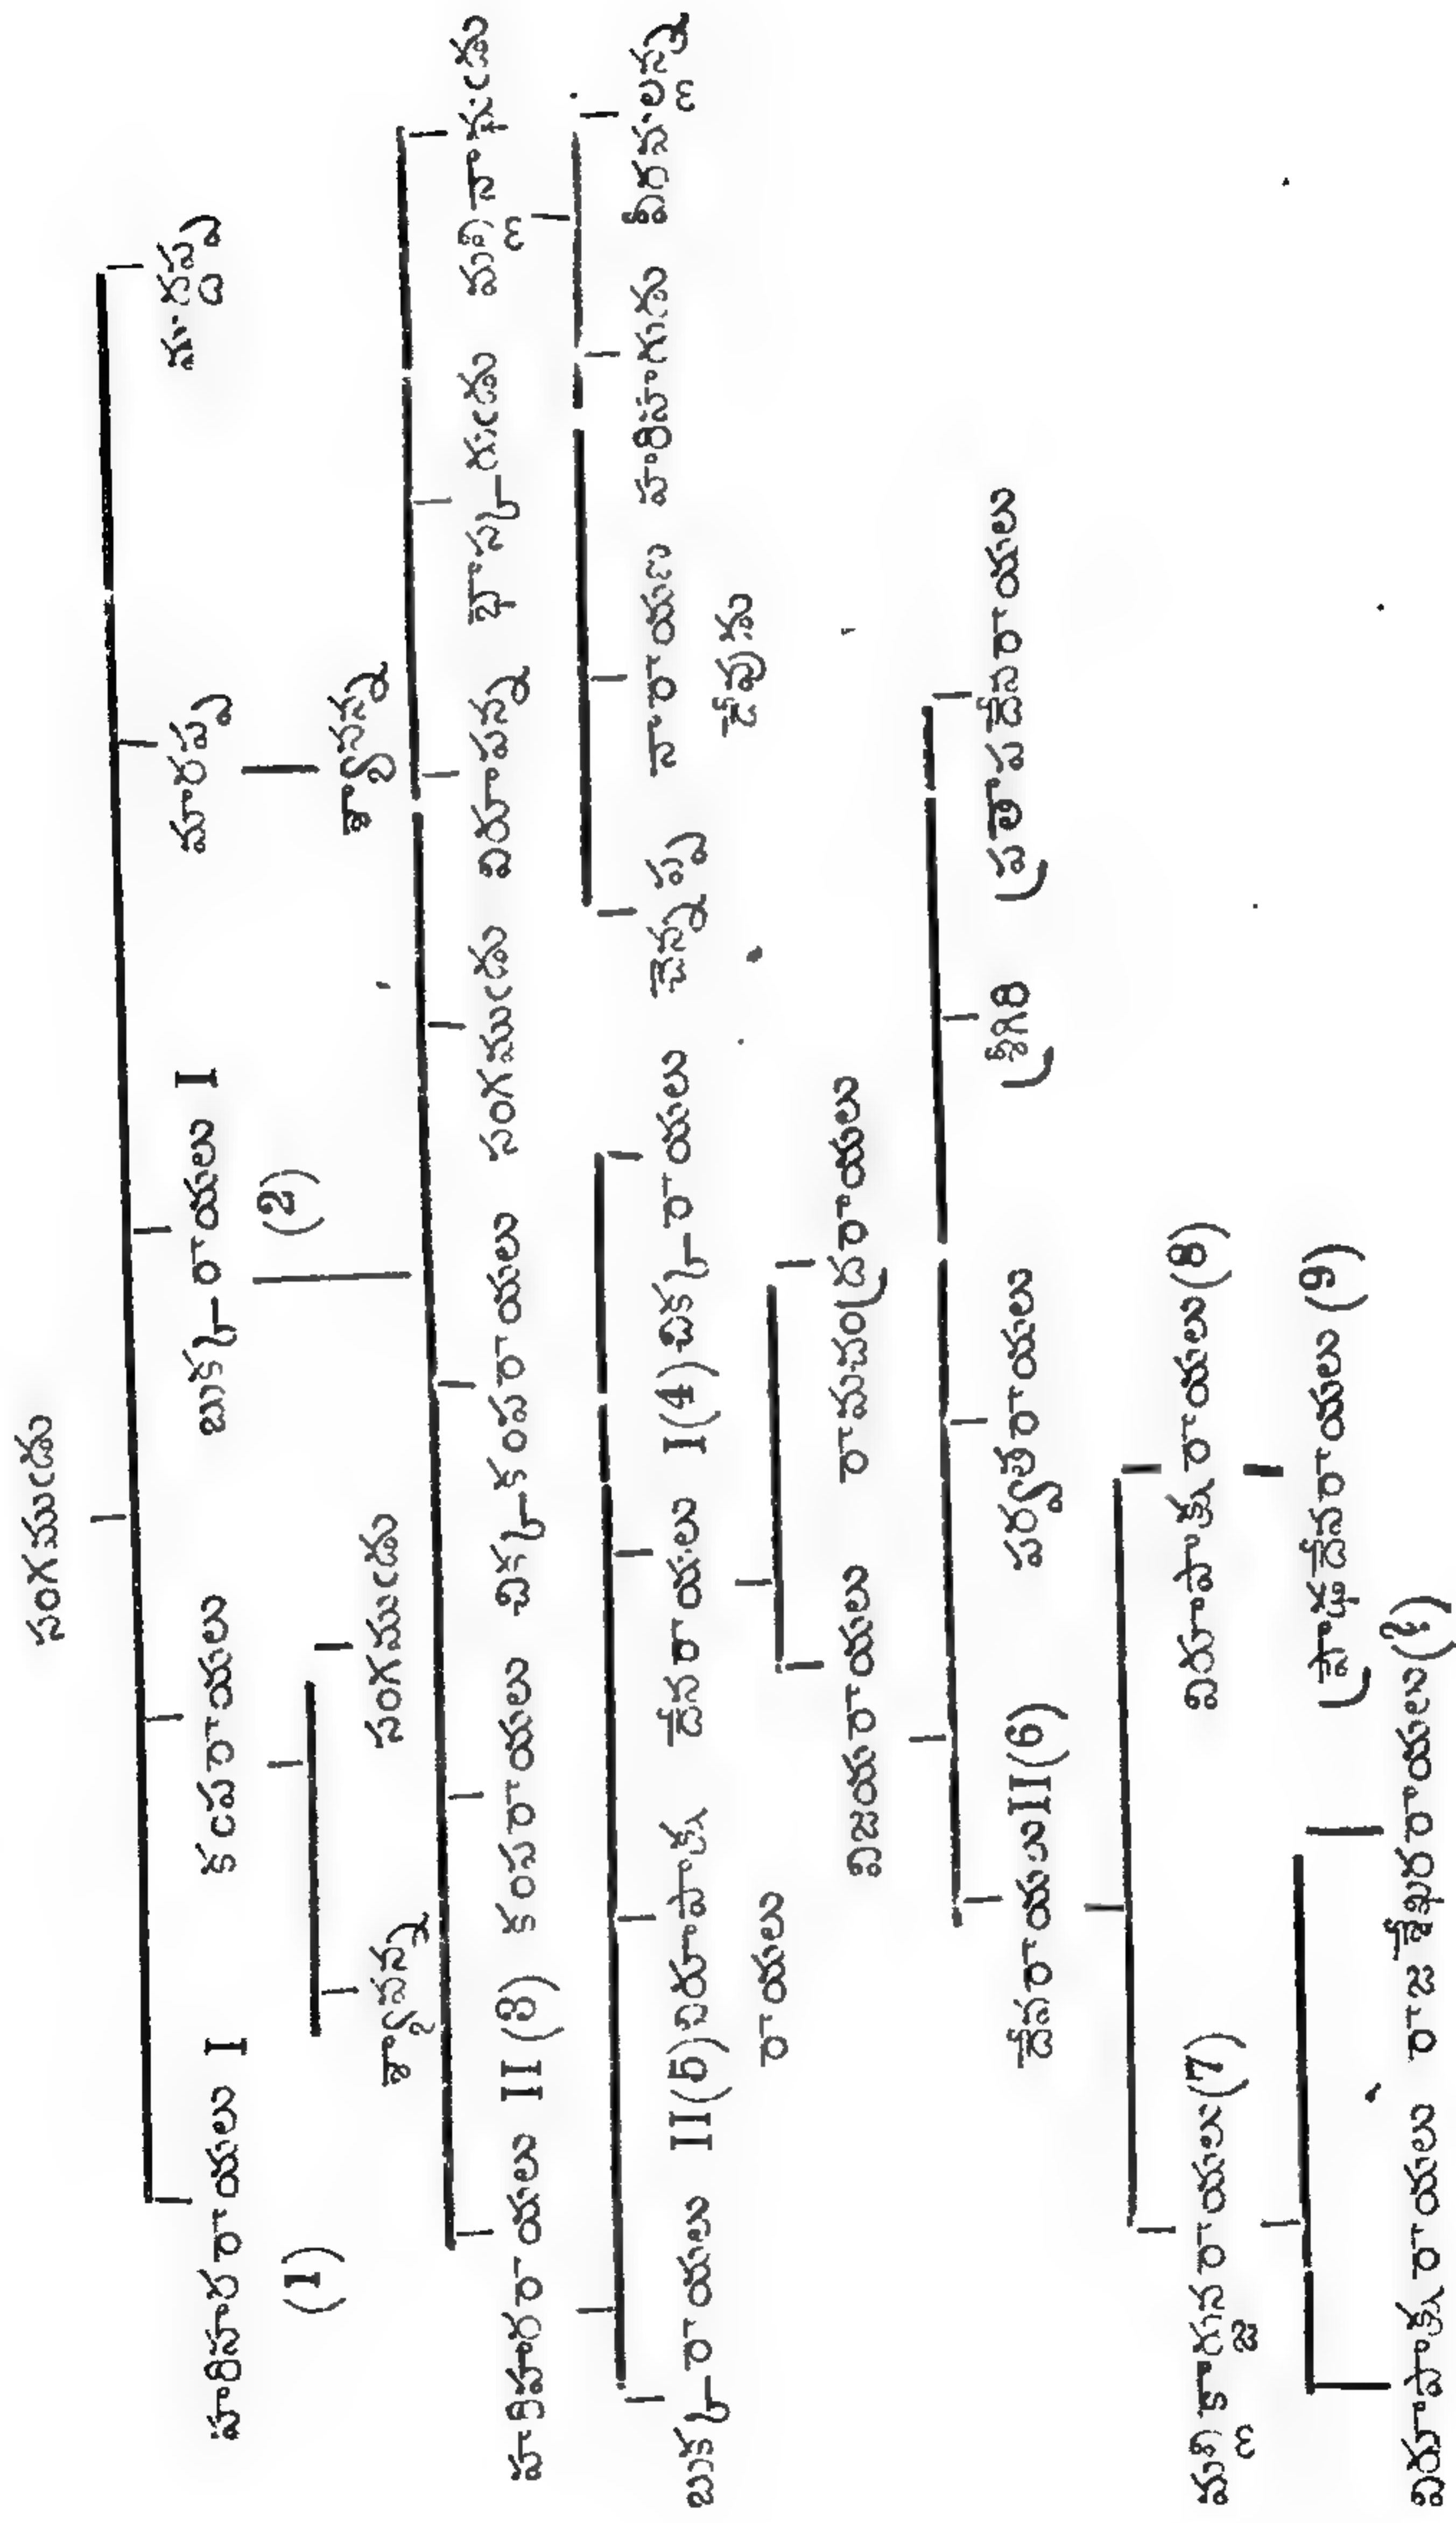 సంగముఁడు
హరిహరరాయలు I కంపరాయలు బుక్కరాయలు I మారప్ప ముద్దప్ప
(1) (2)
శావన్న సంగముఁడు శావన్న
హరిహరరాయలు II (3) కంపరాయలు చిక్కకంపరాయలు సంగముఁడు విరూపన్న భాస్కరుఁడు మల్లినాథుఁడు
బుక్కరాయలు II(5) విరూపాక్ష దేవరాయలు I(4) చిక్కరాయలు చెన్నప్ప నారాయణ హరిహరుడు వీరమల్లన్న
రాయలు దేవుడు
విజయరాయలు రామచంద్రరాయలు
దేవరాయలు II(6) పర్వతరాయలు శ్రీగిరి ప్రతాపదేవరాయలు
మల్లికార్జునరాయలు(7) విరూపాక్షరాయలు(8)
ప్రౌఢదేవరాయలు (9)
విరూపాక్షరాయలు రాజశేఖరరాయలు(?)